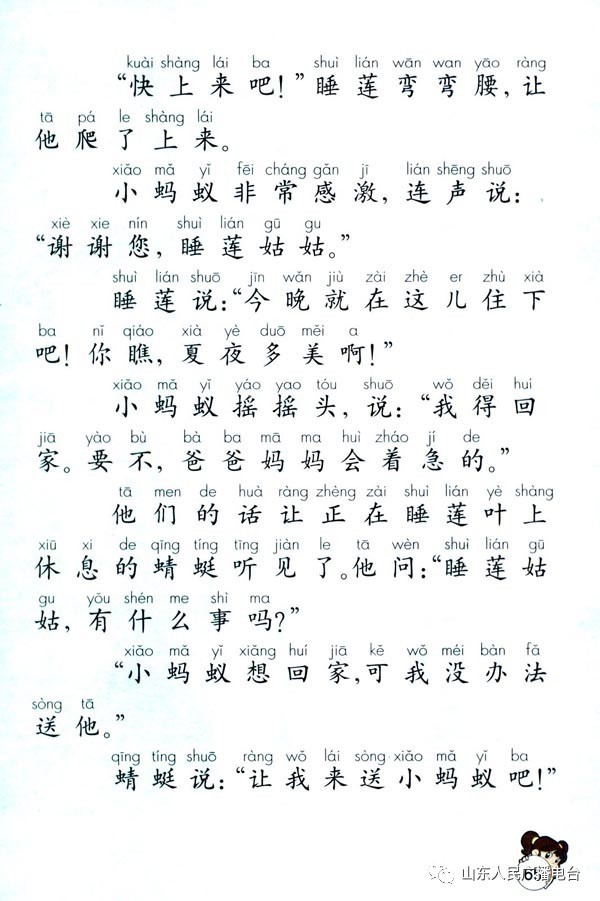 kuài shàng lái ba shuì lián wān wan yāo ràng
“快上来吧！”睡莲弯弯腰，让
tā pá le shàng lái
他爬了上来。
xiǎo mǎ yǐ fēi cháng gǎn jī lián shēng shuō
小蚂蚁非常感激，连声说：
xiè xie nín shuì lián gū gu
“谢谢您，睡莲姑姑。”
shuì lián shuō jīn wǎn jiù zài zhè er zhù xià
睡莲说：“今晚就在这儿住下
ba nǐ qiáo xià yè duō měi a
吧！你瞧，夏夜多美啊！”
xiǎo mǎ yǐ yáo yao tóu shuō wǒ děi huí
小蚂蚁摇摇头，说：“我得回
jiā yào bù bà ba mā ma huì zháo jí de
家。要不，爸爸妈妈会着急的。”
tā men de huà ràng zhèng zài shuì lián yè shàng
他们的话让正在睡莲叶上
xiū xi de qīng tíng tīng jiàn le tā wèn shuì lián gū
休息的蜻蜓听见了。他问：“睡莲姑
gu yǒu shén me shì ma
姑，有什么事吗？”
xiǎo mǎ yǐ xiǎng huí jiā kě wǒ méi bàn fǎ
“小蚂蚁想回家，可我没办法
sòng tā
送他。”
qīng tíng shuō ràng wǒ lái sòng xiǎo mǎ yǐ ba
蜻蜓说：“让我来送小蚂蚁吧！”
山东人民广播电台